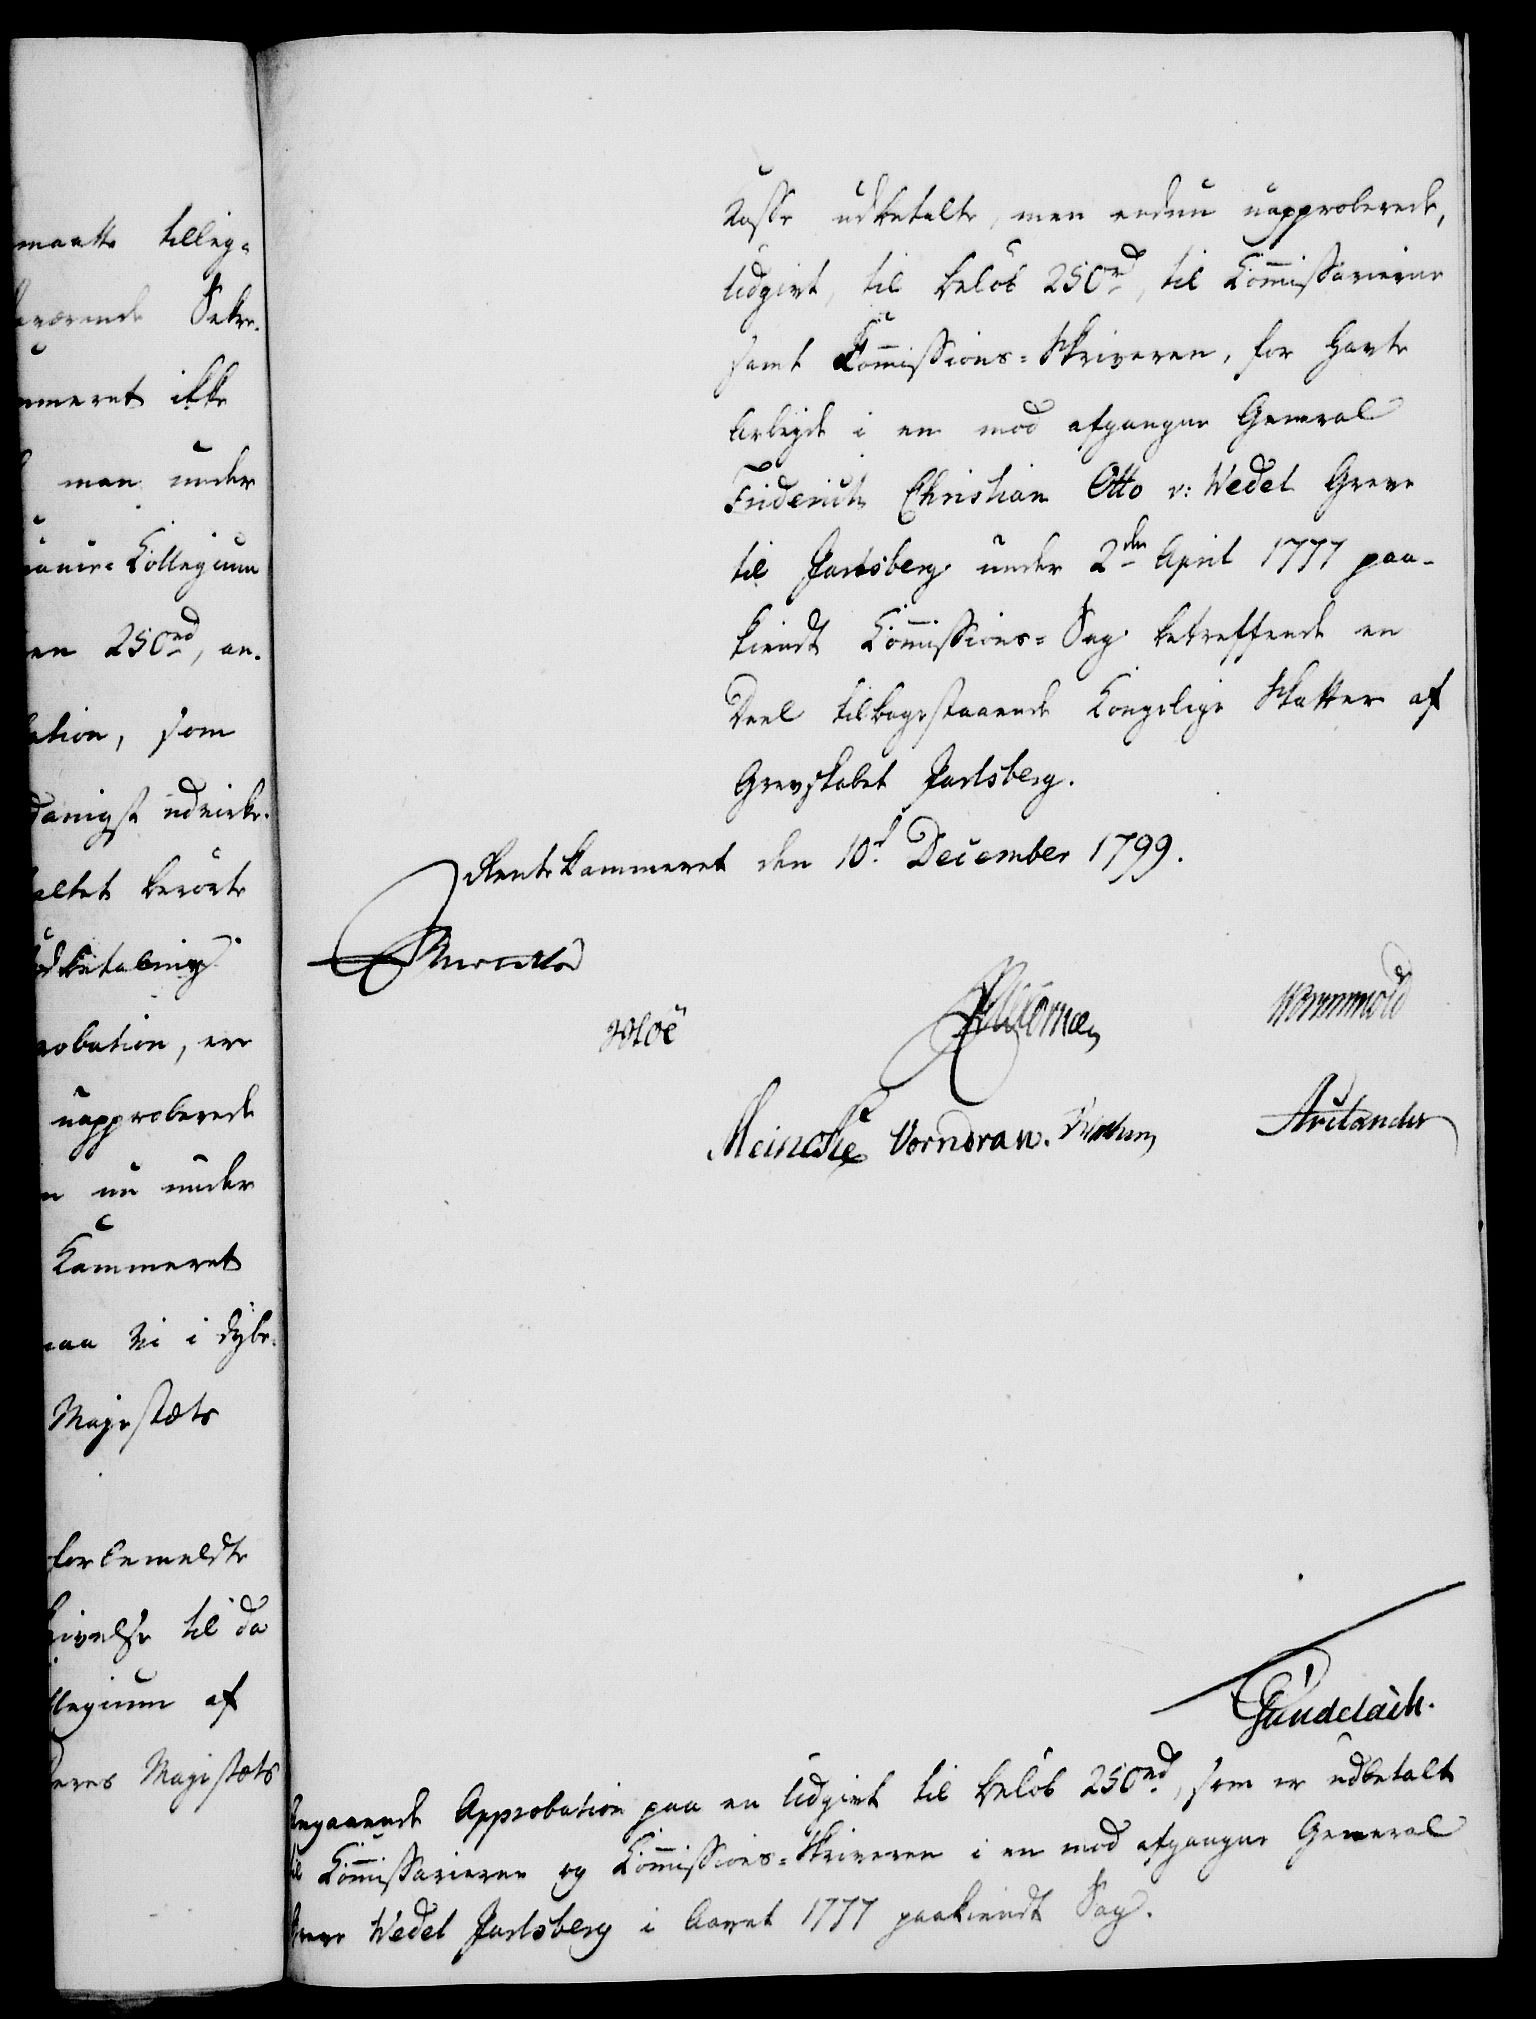 maatte tilleg-
værende Sekre-
mmeret ikke
man under
Collegium
en 250 rd, an-
ation, som
danigst udvirke-
altet berörte
udbetaling
robation, ere
uapproberede
nu under
Kammeret
paa Vi i dybe-
Majestæts
forbemeldte
ivelse til da
llegium af
Deres Majestæts
Kasse udbetalte, men endnu uapproberede,
Udgivt, til Beløb 250 rd, til Commissarierne
samt Commissions-Skriveren, for havte
Arbeyde i en mod afgangne General
Friderich Christian Otto v: Wedel Greve
til Jarlsberg under 2den April 1777 paa-
kiendt Commissions-Sag betreffende en
Deel tilbagestaaende Kongelige Skatter af
Grevskabet Jarlsberg.
Rentekammeret den 10d December 1799.
Reventlow
Wormskiold
Meincke Vorndran. Arctander
Gundelach.
Angaaende Approbation paa en Udgivt til Beløb 250 rd, som er udbetalt
til Commissarierne og Commissions-Skriveren i en mod afgangne General
Greve Wedel Jarlsberg i Aaret 1777 paakiendt Sag.